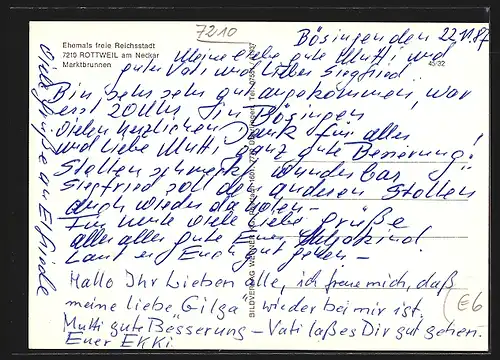 7210
Ehemals freie Reichsstadt
7210 ROTTWEIL am Neckar
Marktbrunnen
45/32
Bösingen den 22.11.87
Meine liebe gute Mutti und
guter Vati und lieber Siegfried!
Bin sehr sehr gut angekommen, war
erst 20 Uhr in Bösingen
Vielen herzlichen Dank für alles!
und liebe Mutti ganz gute Besserung!
Stollen schmeckt wunderbar
Siegfried soll den anderen Stollen
auch wieder da holen –
Für heute viele liebe Grüße
alles alles gute Euer
Laßt es Euch gut gehen –
Viele Grüße an Elfriede
Hallo Ihr Lieben alle, ich freue mich, daß
meine liebe „Gilga" wieder bei mir ist.
Mutti gute Besserung – Vati laß es Dir gut gehen.
Euer EKKi
E6
BILDVERLAG